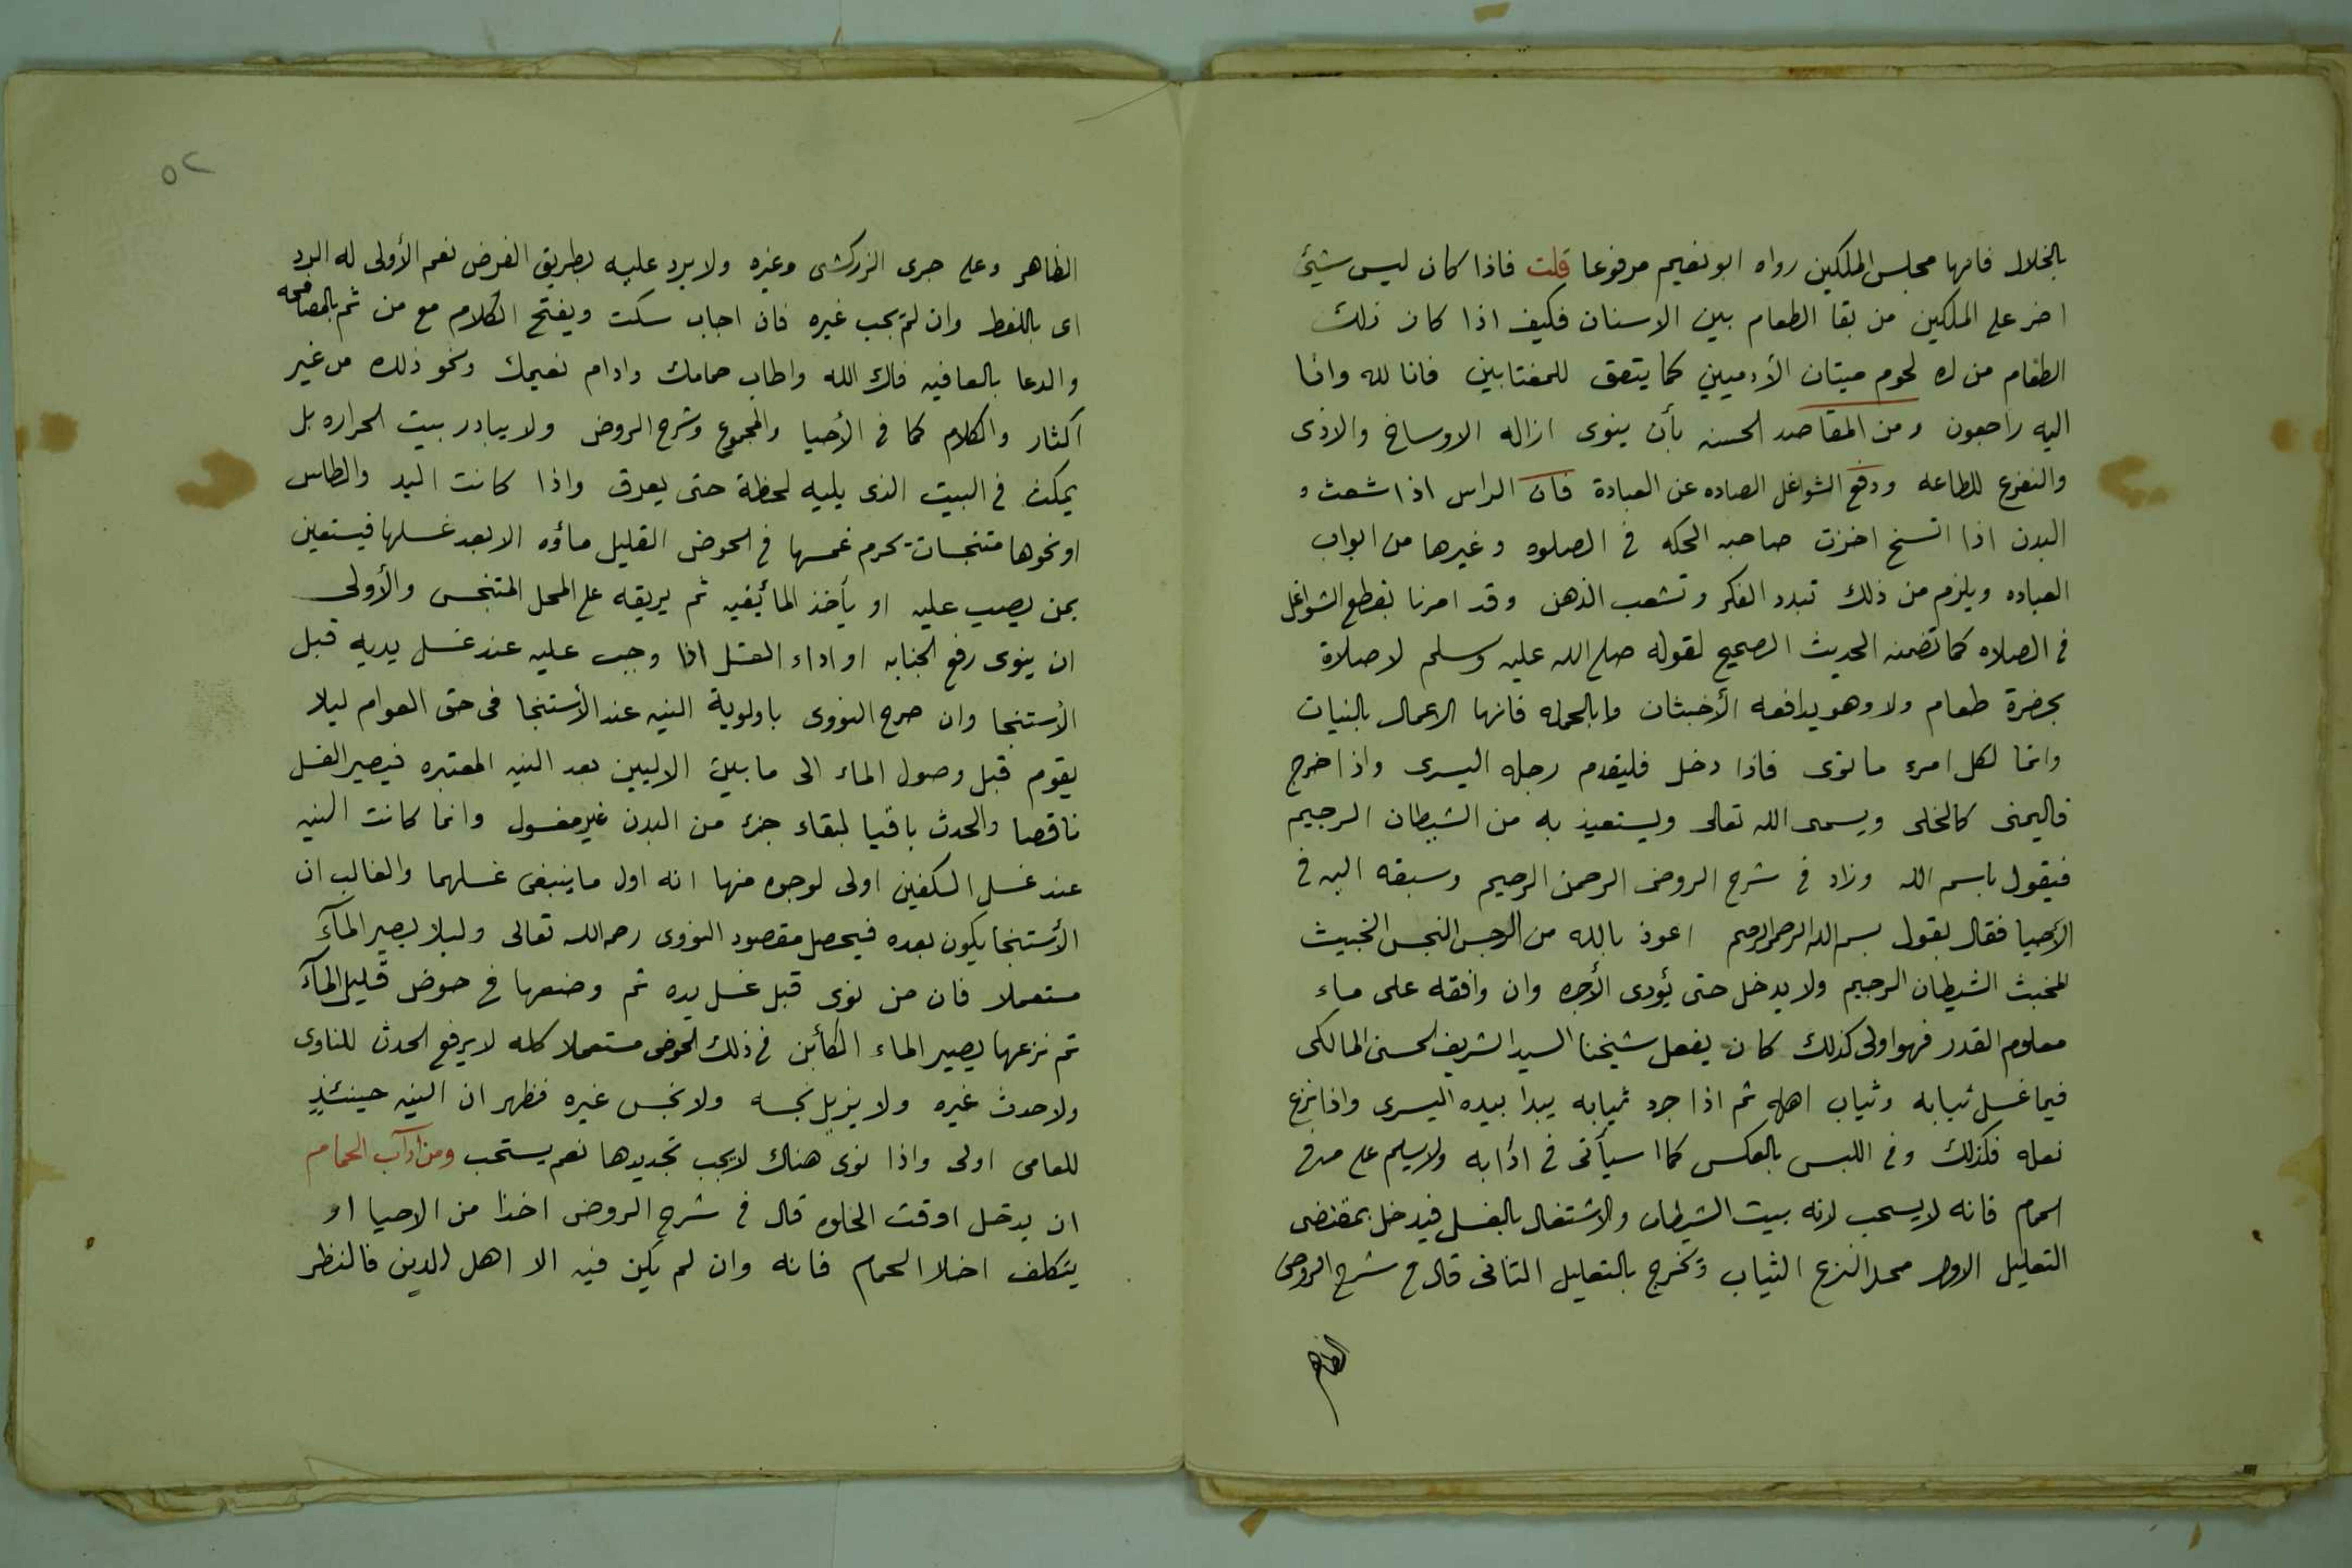 بالخلال فانها مجلس الملكين رواه ابو نعيم مرفوعا قلت فاذا كان ليس شيئ
اضر على الملكين من بقا الطعام بين الاسنان فكيف اذا كان ذلك
الطعام من لحوم ميتان الأدميين كما يتفق للمغتابين فانا لله وانا
اليه راجعون ومن المقاصد الحسنه بأن ينوى ازاله الاوساخ والاذى
والتفرغ للطاعه ودفع الشواغل الصاده عن العبادة فان الراس اذا شعث و
البدن اذا اتسخ اخزت صاحبه الحكه في الصلوه وغيرها من ابواب
العباده ويلزم من ذلك تبدد الفكر وتشعب الذهن وقد امرنا بقطع الشواغل
في الصلاه كما تضمنه الحديث الصحيح لقوله صلى الله عليه وسلم لا صلاة
بحضرة طعام ولا وهو يدافعه الأخبثان وبالجمله فانها الاعمال بالنيات
وانما لكل امرء ما نوى فاذا دخل فليقدم رجله اليسرى واذا خرج
فاليمنى كالخلى ويسمى الله تعالى ويستعيذ به من الشيطان الرجيم
فيقول باسم الله وزاد في شرح الروض الرحمن الرحيم وسبقه اليه في
الاحيا فقال يقول بسم الله الرحمن الرحيم اعوذ بالله من الرجس النجس الخبيث
المخبث الشيطان الرجيم ولا يدخل حتى يؤدى الأجره وان وافقه على ماء
معلوم القدر فهو اولى كذلك كان يفعل شيخنا السيد الشريف الحسنى المالكى
فيما غسل ثيابه وثياب اهله ثم اذا جرد ثيابه يبدا بيده اليسرى واذا نزع
نعله فكذلك وفي اللبس بالعكس كما سيأتى في ادابه ولا يسلم على من في
الحمام فانه لا يستحب لانه بيت الشيطان والاشتغال بالغسل فيدخل بمقتضى
التعليل الاول محل النزع الثياب ويخرج بالتعليل الثانى قال في شرح الروض
الظاهر
٥٢
الظاهر وعلى جرى الزركشى وغيره ولا يرد عليه بطريق الفرض نعم الأولى له الرد
اى باللفظ وان لم يجب غيره فان اجاب سكت ويفتح الكلام مع من ثم بالمصافحه
والدعا بالعافيه فاك الله واطاب حمامك وادام نعيمك ونحو ذلك من غير
اكثار والكلام كما في الأحيا والمجموع وشرح الروض ولا يبادر بيت الحراره بل
يمكث في البيت الذى يليه لحظة حتى يعرق واذا كانت اليد والطاس
او نحوها متنجسات يحرم غمسها في الحوض القليل ماؤه الا بعد غسلها فيستعين
بمن يصب عليه او يأخذ الما بفيه ثم يريقه على المحل المتنجس والأولى
ان ينوى رفع الجنابه او اداء الغسل اذا وجب عليه عند غسل يديه قبل
الأستنجا وان صرح النووى باولوية النيه عند الأستنجا فى حق العوام ليلا
يقوم قبل وصول الماء الى ما بين الاليين بعد النيه المعتبره فيصير الغسل
ناقصا والحدث باقيا لبقاء جزء من البدن غير مغسول وانما كانت النيه
عند غسل الكفين اولى لوجوه منها انه اول ما ينبغى غسلهما والغالب ان
الأستنجا يكون بعده فيحصل مقصود النووى رحمه الله تعالى وليلا يصير المآء
مستعملا فان من نوى قبل غسل يده ثم وضعها في حوض قليل المآء
ثم نزعها يصير الماء الكأين في ذلك الحوض مستعملا كله لا يرفع الحدث للناوى
ولا حدث غيره ولا يزيل نجسه ولا نجس غيره فظهر ان النيه حينئذٍ
للعامى اولى واذا نوى هناك لا يجب تجديدها نعم يستحب ومن اداب الحمام
ان يدخل اوقت الخلوه قال في شرح الروض اخذا من الاحيا او
يتكلف اخلا الحمام فانه وان لم يكن فيه الا اهل الدين فالنظر